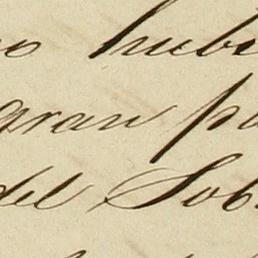 no hubi
gran pa
del Sob